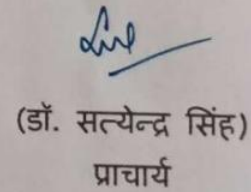 (डॉ. सत्येन्द्र सिंह)
प्राचार्य